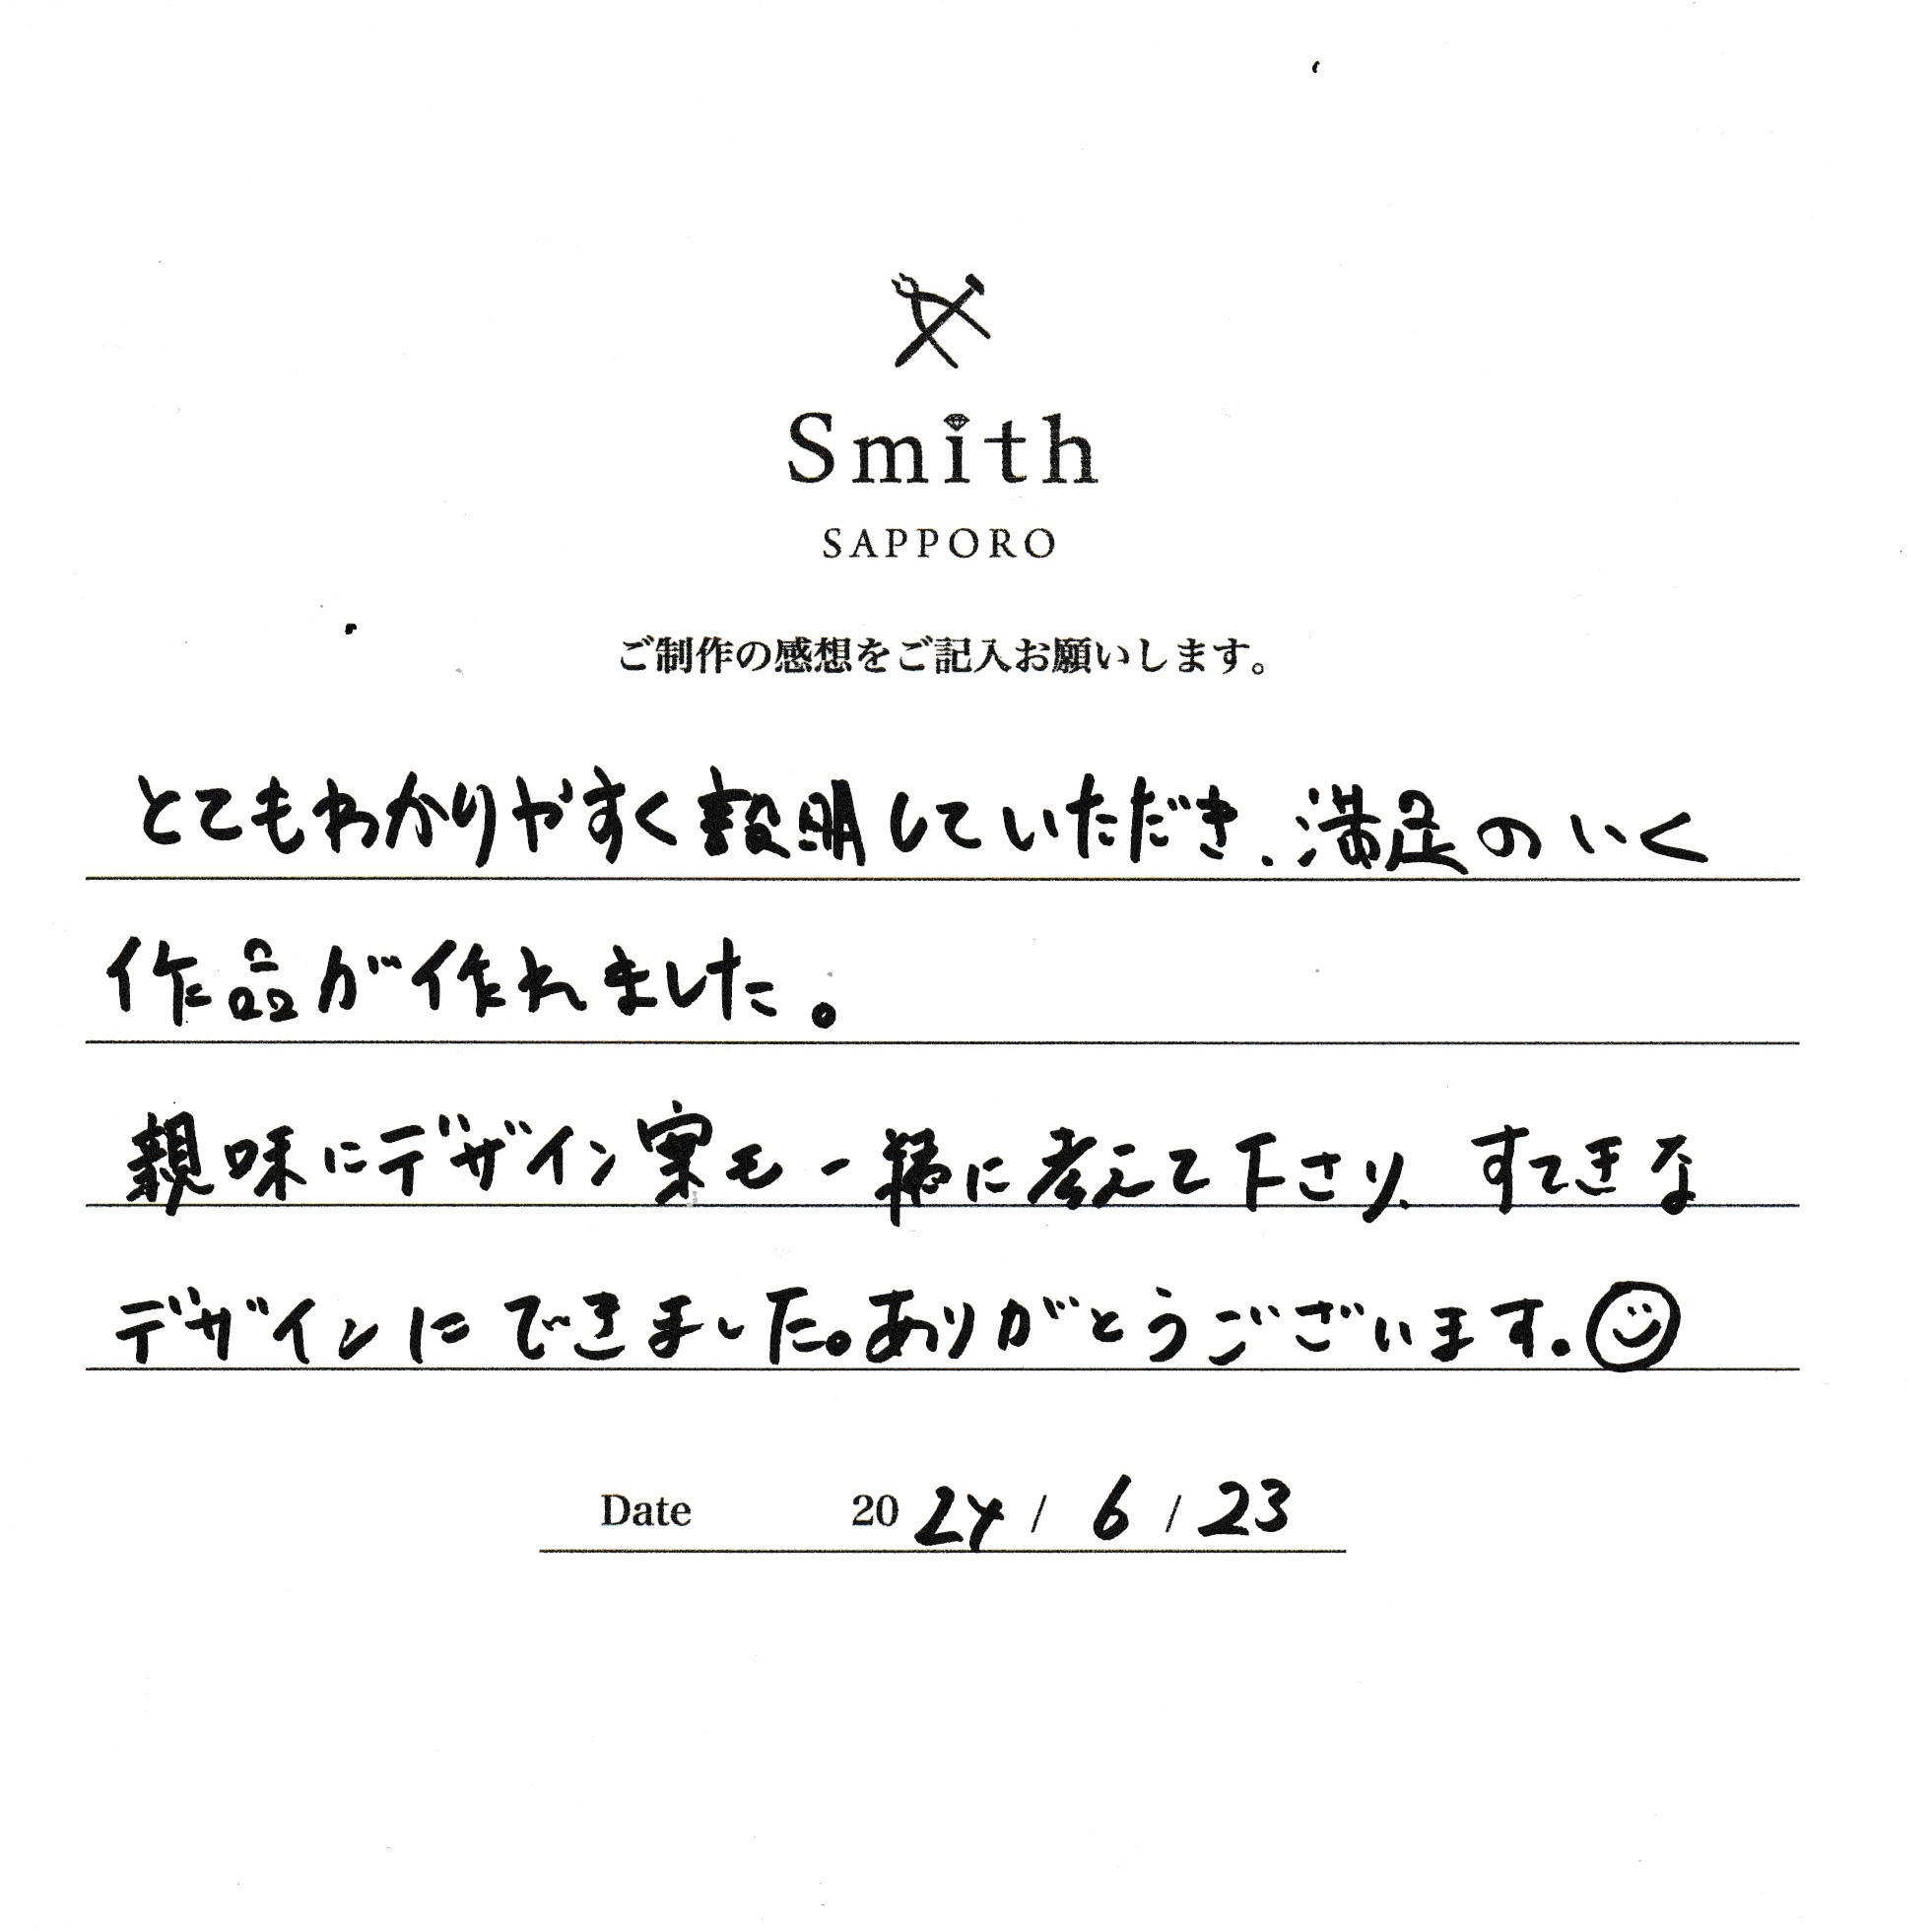 Smith
SAPPORO
ご制作の感想をご記入お願いします。
とてもわかりやすく説明していただき、満足のいく
作品が作れました。
親味にデザイン案も一緒に考えて下さり、すてきな
デザインにできました。ありがとうございます。
Date 2024 / 6 / 23